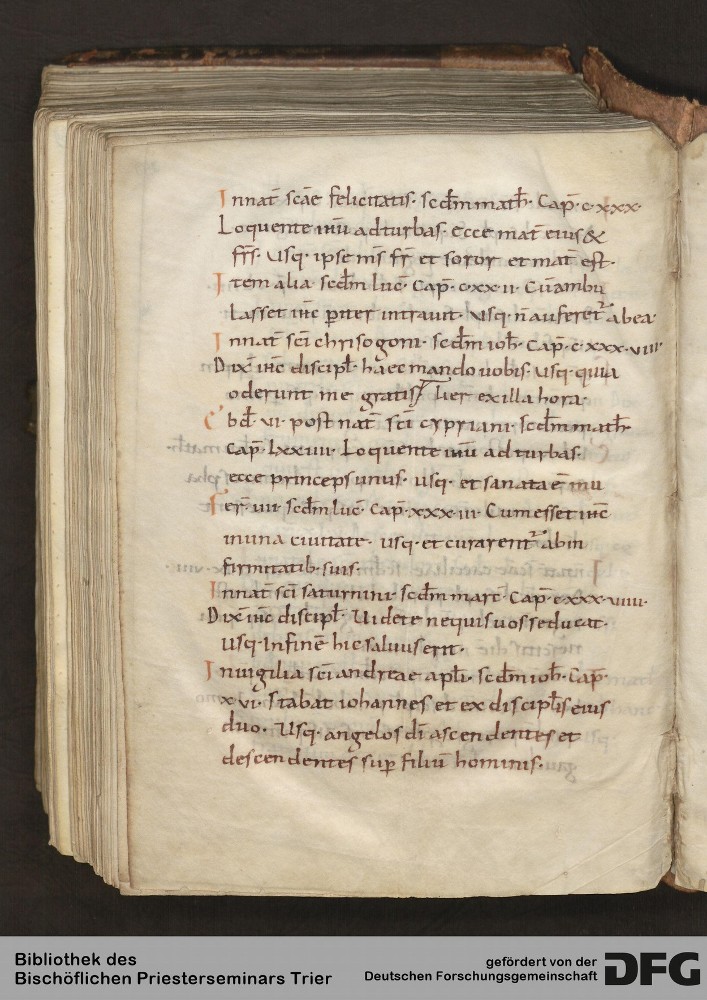 Innat̄ scāe felicitatis· scd̄m math̄· Cap̄· c·xxx·
Loquente ihū adturbas· ecce mat̄ eius &
frs̄· Usq· ipse ms̄ fr̄ et soror et mat̄ est·
Item alia scd̄m luc̄· Cap̄· c·xx·ii· Cūambu
lasset ihc̄ p̄ter intrauit· usq· n̄auferet᷑ abea·
Innat̄ scī chrisogoni· scd̄m ioh̄· Cap̄· c·xxx·viiii
Dix̄ ihc̄ discipl̄· haec mando uobis· usq· quia
oderunt me gratis ℣ lier exilla hora·
Ebd̄· vi· post nat̄ scī cypriani· scd̄m math̄·
Cap̄· lxxiiii· Loquente ihū ad turbas·
ecce princeps unus· usq· et sanata ē mu
Fer̄· vii· scd̄m luc̄· Cap̄· xxx·iii· Cum esset ihc̄
inuna ciuitate· usq· et curarent᷑ abin
firmitatib· suis·
Innat̄ scī saturnini· scd̄m marc̄· Cap̄· c·xxx·viiii·
Dix̄ ihc̄ discipl̄· Uidete nequis uos seducat·
usq· Infinē hic saluus erit·
Inuigilia scī andreae apl̄i· scd̄m ioh̄· Cap̄·
xvi· Stabat iohannes et ex discipl̄is eius
duo· Usq· angelos dī ascendentes et
descendentes sup̄ filiū hominis·
Bibliothek des
Bischöflichen Priesterseminars Trier
gefördert von der
Deutschen Forschungsgemeinschaft
DFG